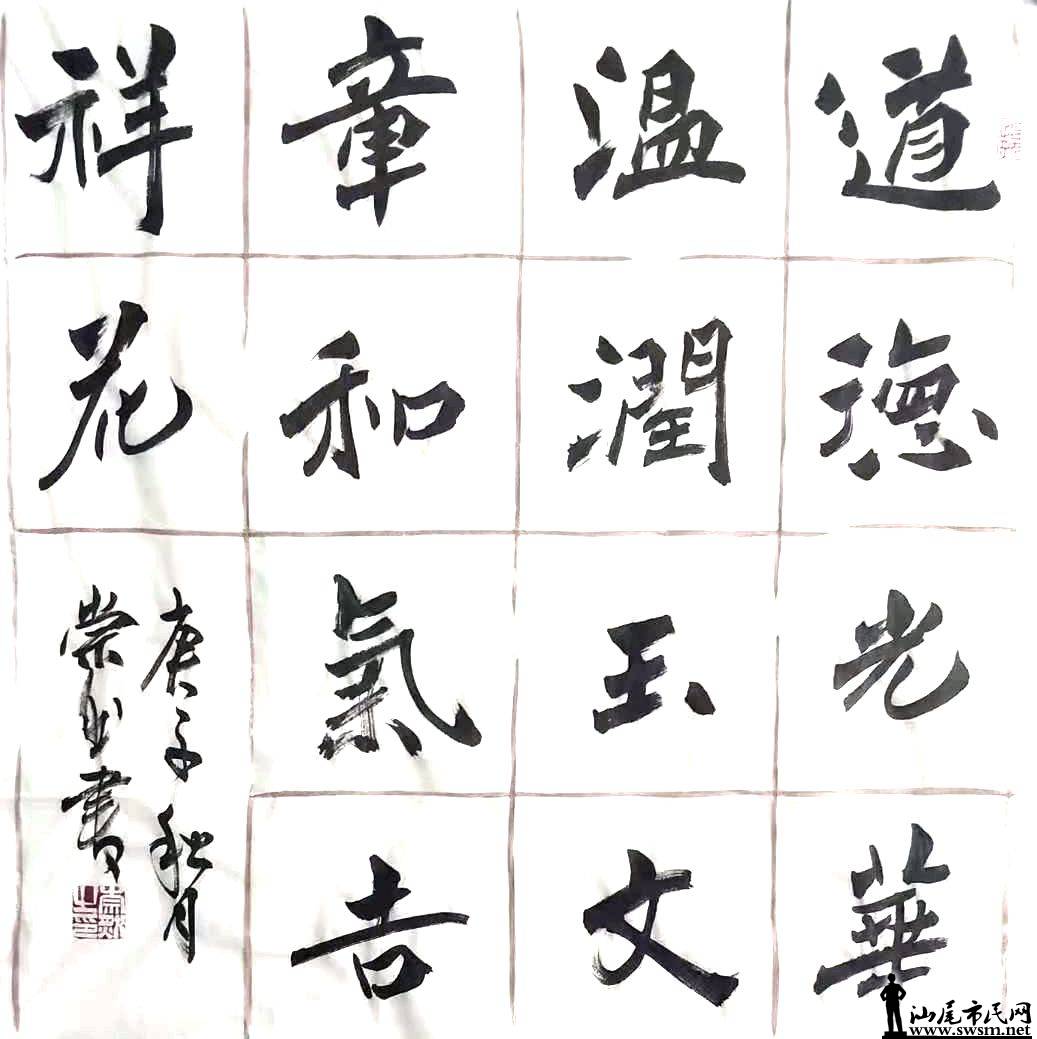 道德光華
温潤玉文
章和氣吉
祥花
庚子秋月
書
汕尾市民网
www.swsm.net